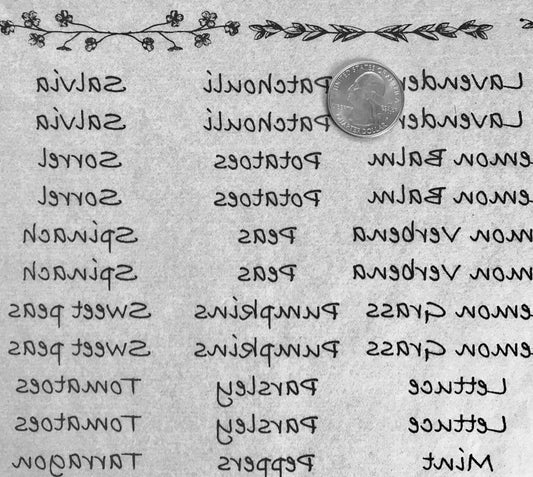 Salvia Patchouli Lavender
Salvia Patchouli Lavender
Sorrel Potatoes emon Balm
Sorrel Potatoes emon Balm
Spinach Peas mon Verbena
Spinach Peas mon Verbena
Sweet peas Pumpkins emon Grass
Sweet peas Pumpkins emon Grass
Tomatoes Parsley Lettuce
Tomatoes Parsley Lettuce
Tarragon Peppers Mint